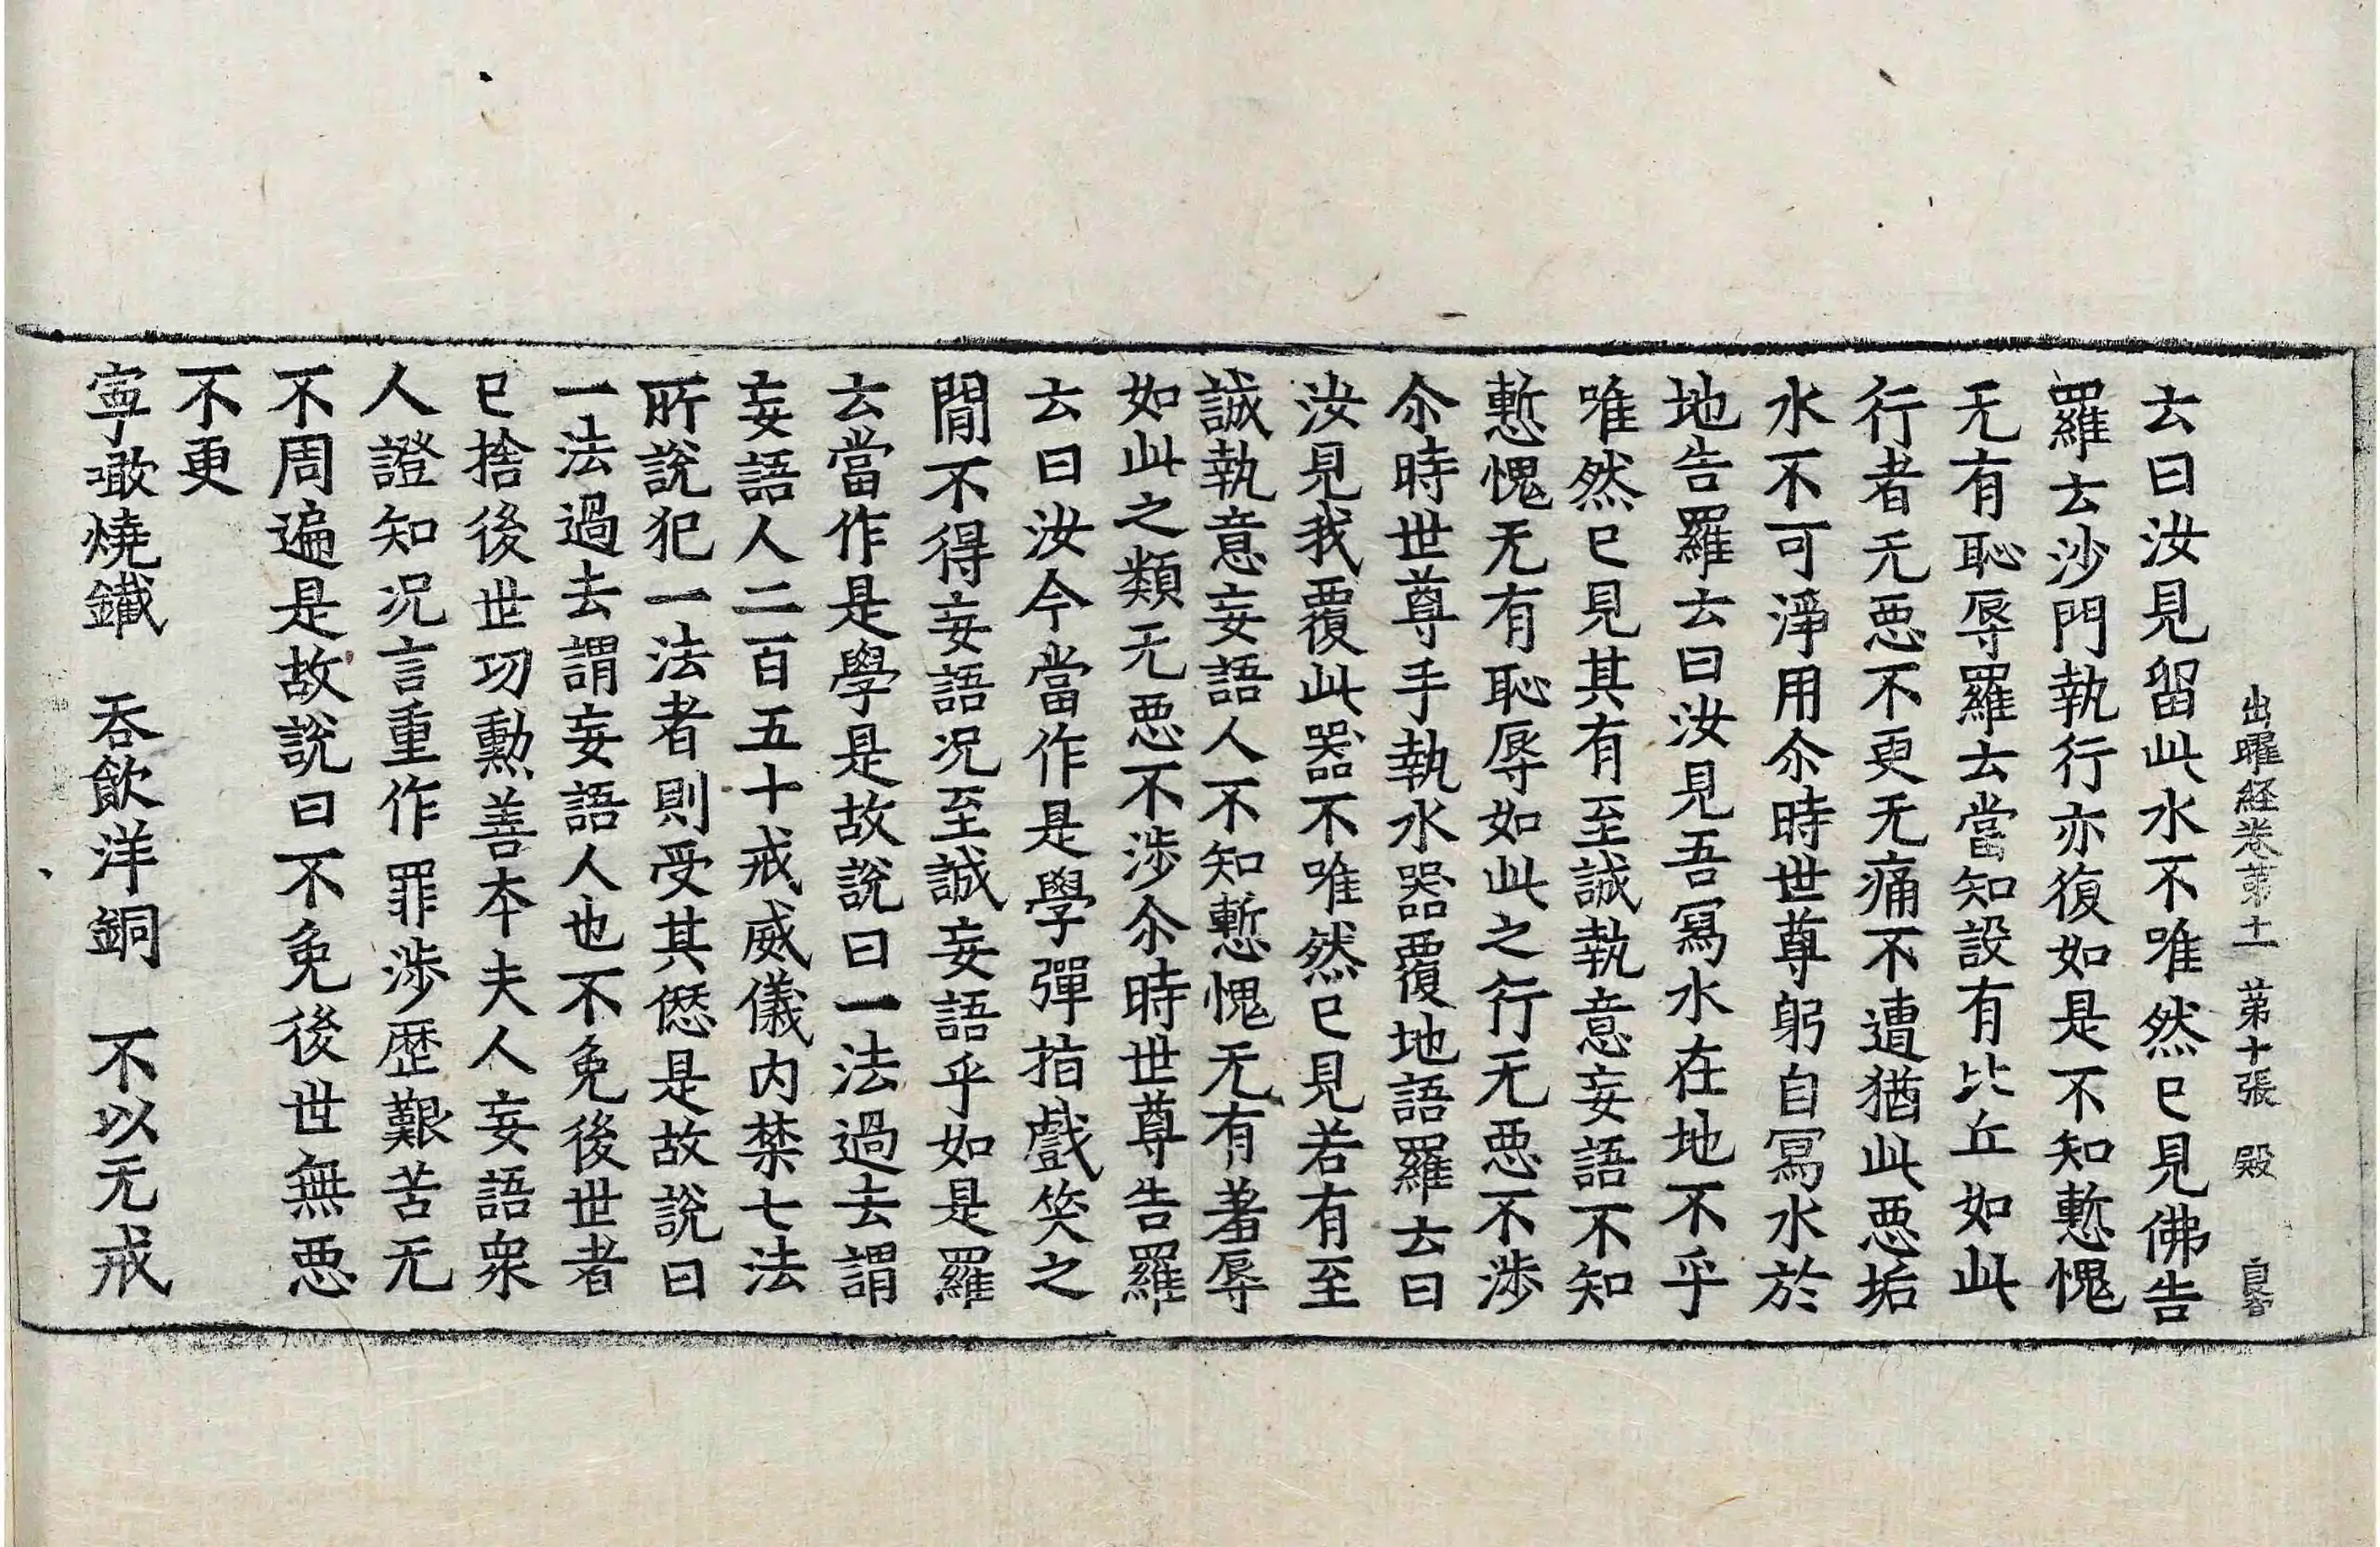 出曜経卷第十一 第十張 殿
云曰汝見留此水不唯然已見佛告
羅云沙門執行亦復如是不知慙愧
无有恥辱羅云當知設有比丘如此
行者无惡不更无痛不遭猶此惡垢
水不可淨用尒時世尊躬自寫水於
地告羅云曰汝見吾寫水在地不乎
唯然已見其有至誠執意妄語不知
慙愧无有恥辱如此之行无惡不涉
尒時世尊手執水器覆地語羅云曰
汝見我覆此器不唯然已見若有至
誠執意妄語人不知慙愧无有羞辱
如此之類无惡不涉尒時世尊告羅
云曰汝今當作是學彈指戲笑之
閒不得妄語况至誠妄語乎如是羅
云當作是學是故說曰一法過去謂
妄語人二百五十戒威儀内禁七法
所說犯一法者則受其僽是故說曰
一法過去謂妄語人也不免後世者
已捨後世功勳善夲夫人妄語衆
人證知况言重作罪涉歷艱苦无
不周遍是故說曰不免後世無惡
不更
寧噉燒鐵 吞飲洋銅 不以无戒